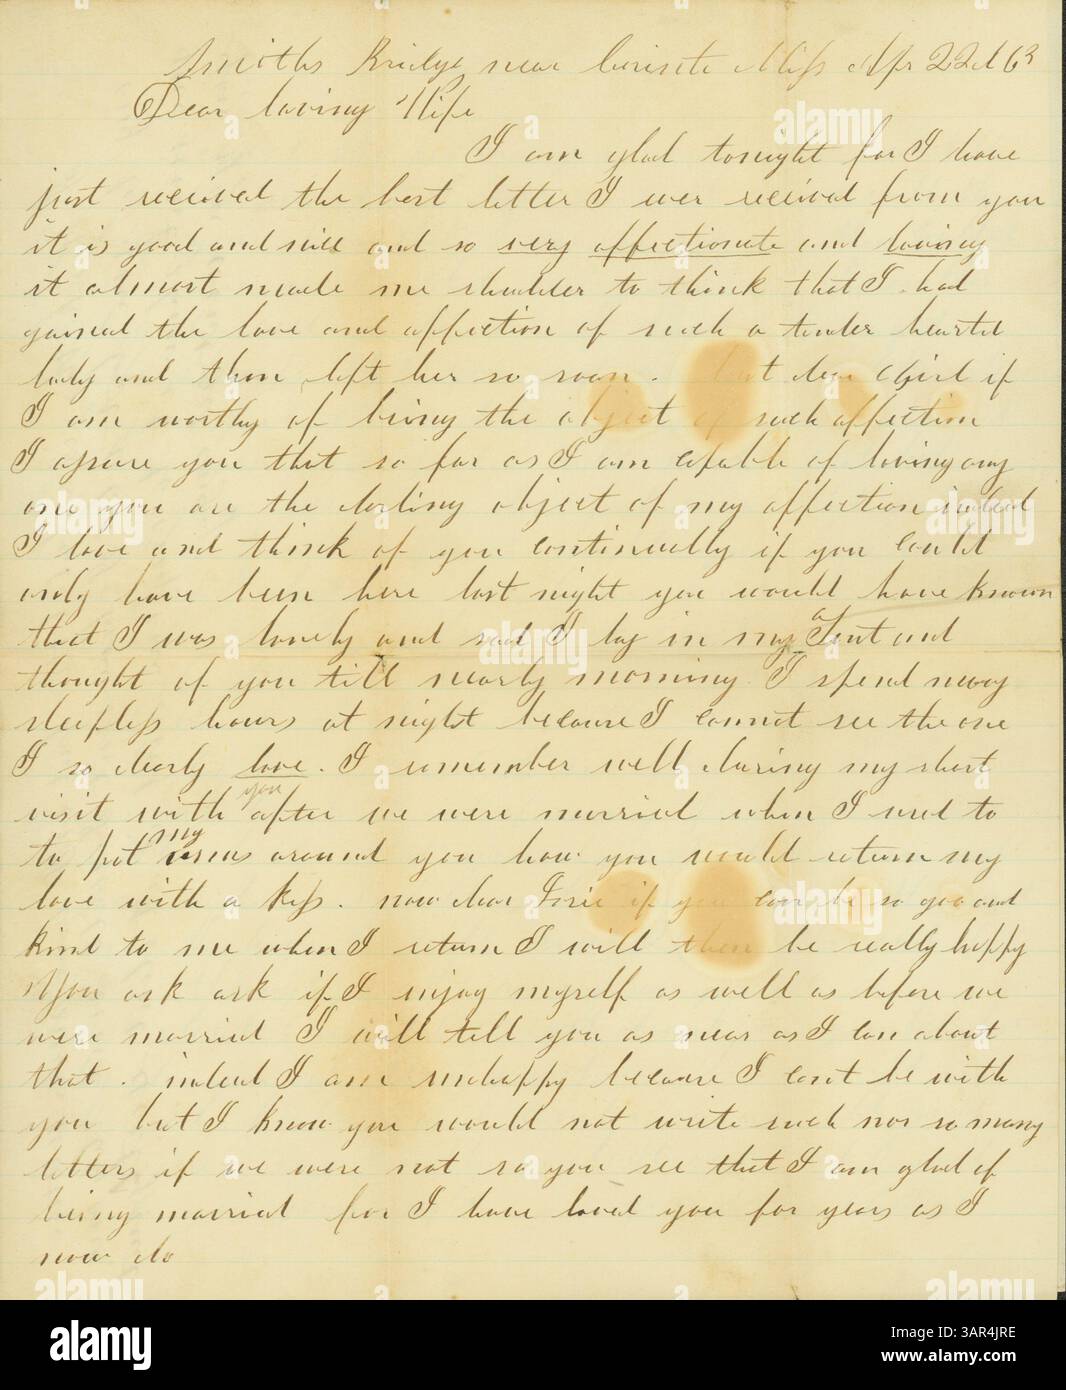 Smiths Bridge near Corinth Miss Apr 22d 63
Dear loving Wife
I am glad tonight for I have
just received the best letter I ever received from you
it is good and nice and so very affectionate and loving
it almost made me shudder to think that I had
gained the love and affection of such a tender hearted
lady and then left her so soon. But dear girl if
I am worthy of being the object of such affection
I assure you that so far as I am capable of loving any
one you are the darling object of my affection indeed
I love and think of you continually if you could
only have been here last night you would have known
that I was lonely and sad I lay in my Tent and
thought of you till nearly morning I spend many
sleepless hours at night because I cannot see the one
I so dearly love. I remember well during my short
visit with you after we were married when I used to
to put my arms around you how you would return my
love with a kiss. now dear if you can be so good and
kind to me when I return I will then be really happy
You ask ask if I injoy myself as well as before we
were married I will tell you as near as I can about
that. indeed I am unhappy because I cant be with
you but I know you would not write such nor so many
letters if we were not so you see that I am glad of
being married for I have loved you for years as I
now do
alamy
Image ID: 3AR4JRE
www.alamy.com